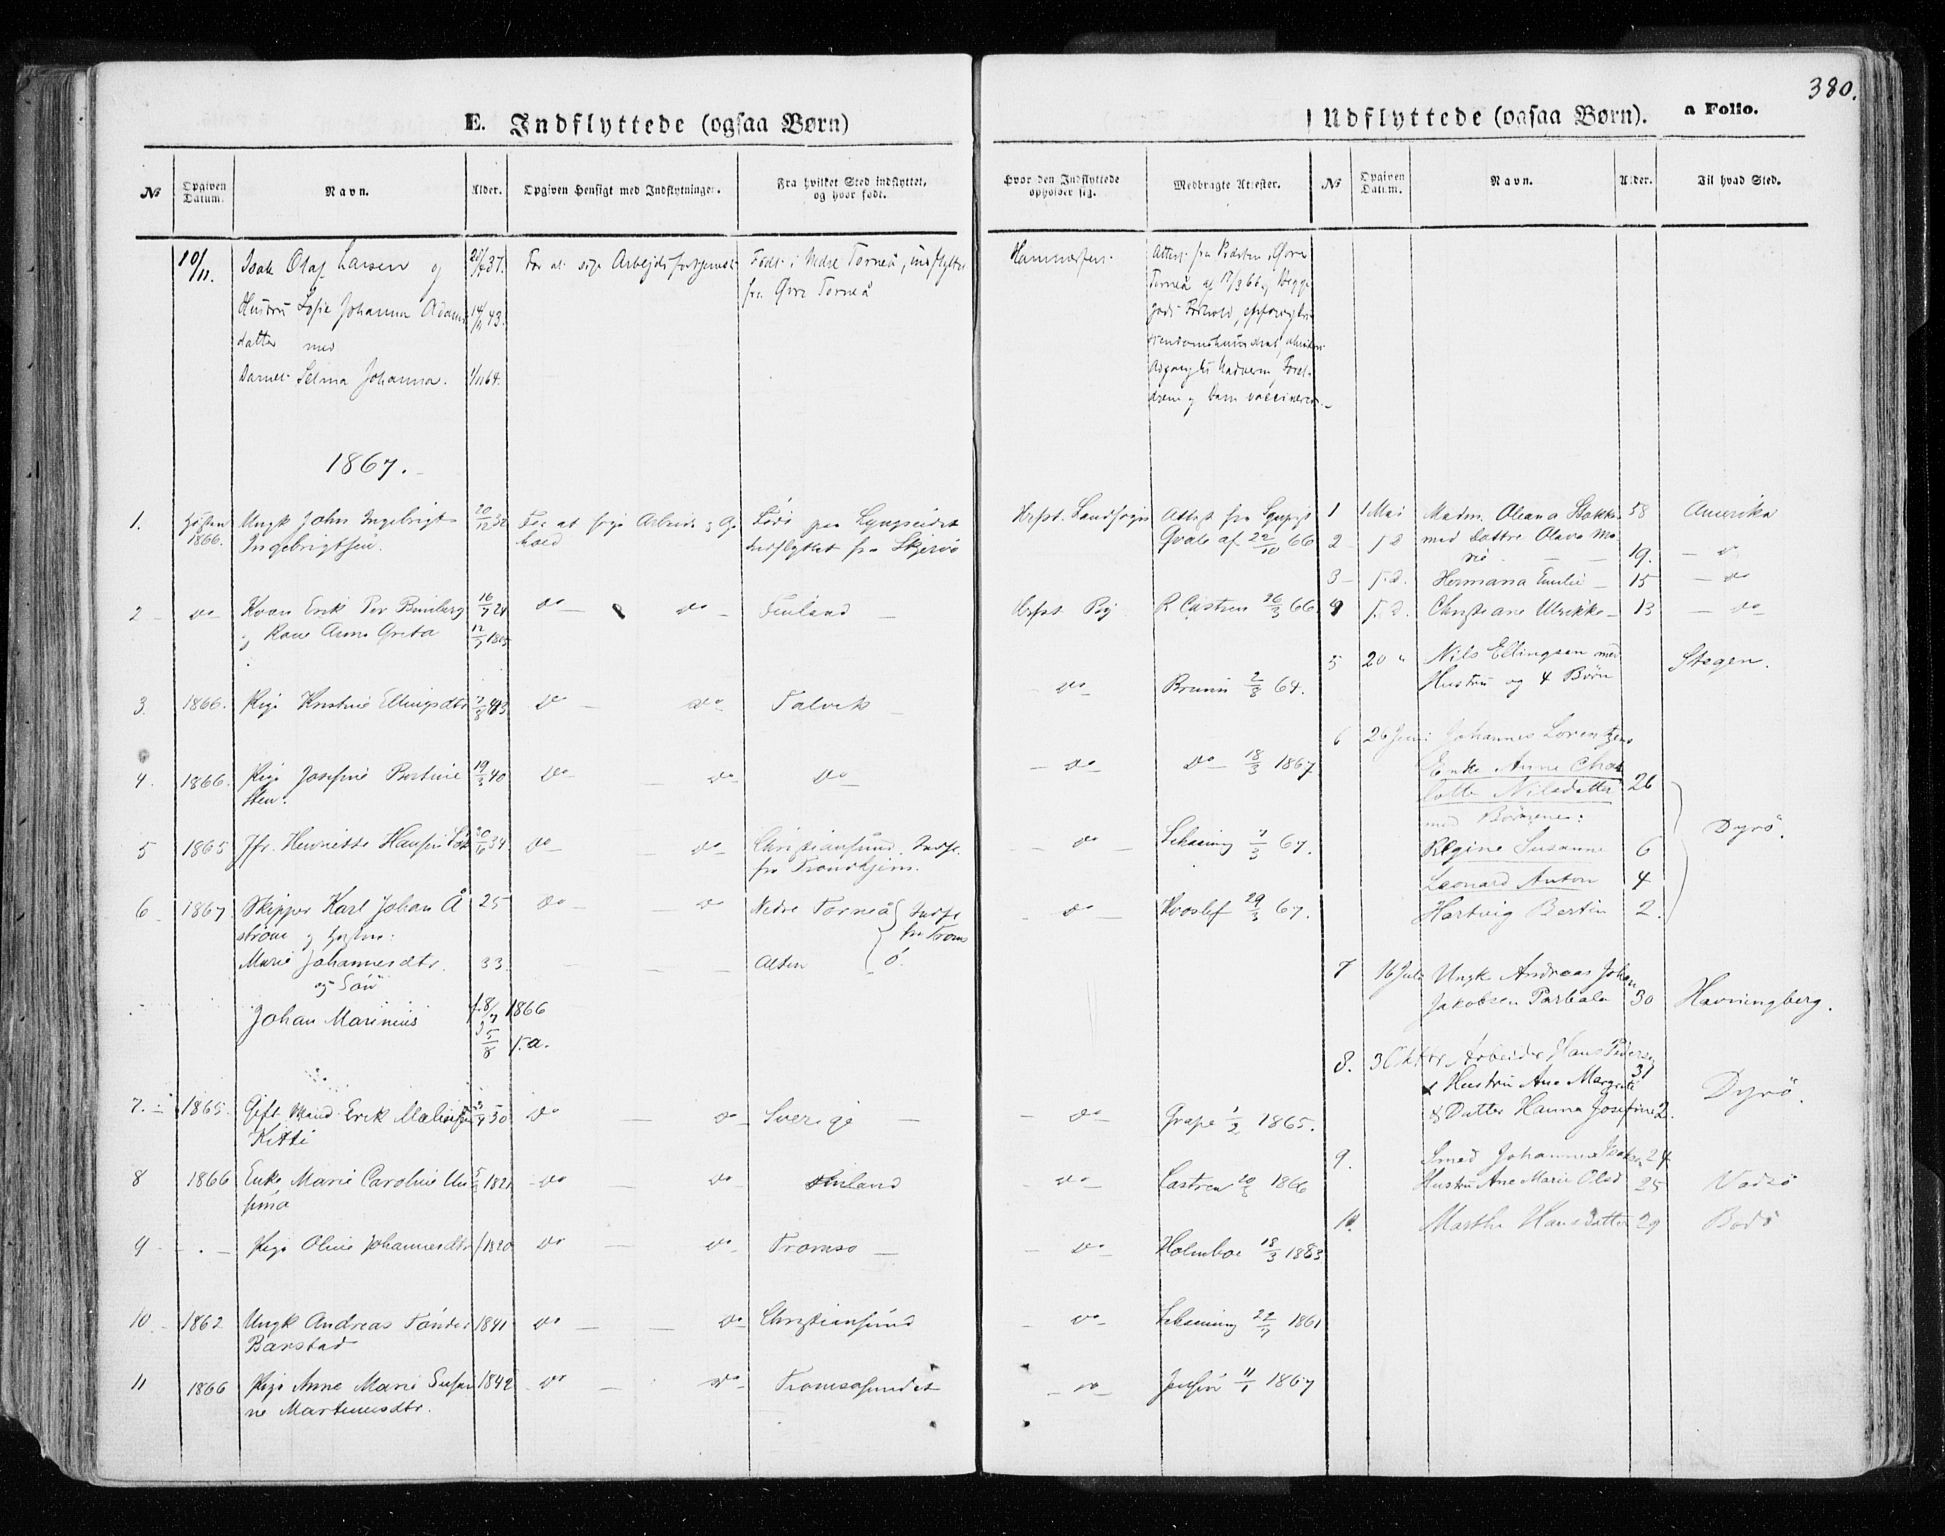 380.
E. Indflyttede (ogsaa Børn)
Udflyttede (ogsaa Børn). a Folio.
No
Opgiven Datum.
Navn.
Alder.
Opgiven Hensigt med Indflytningen.
Fra hvilket Sted indflyttet, og hvor født.
Hvor den Indflyttede opholder sig.
Medbragte Attester.
No
Opgiven Datum.
Navn.
Alder.
Til hvad Sted.
10/11. Isak Olaf Larsen og
Hustru Sofie Johanna Adams
datter med
Barnet Selma Johanna. 1/11 64.
14/1 43.
For at søge Arbejdsfortjeneste
Født i Nedre Torneå, indflyttet
fra Øvre Torneå
Hammerfest
Attest fra Præsten i Øvre
Torneå af 17/3 66
1867.
1. Høsten 1866. Ungk John Ingebrigt
Ingebrigtsen. 20/12 32
For at søge Arbeide og Op
hold
Født paa Lyngseidet
Indflyttet fra Skjervø
Hrfst. Landsogn
Attest fra Sgpr
Qvale af 22/10 66
2 - do Kvæn Erik Per Bumberg 16/7 21
og Kone Anna Greta 12/7 1805
do - do - Finland -
Hrfst By R Castren 26/3 66
3. 1866. Pige Kristine Ellingsdtr
do - do Talvik -
do Bruun 2/3 64.
4. 1866. Pige Josefine Bertine 19/3 40
Sten:
do - do - do -
- do - do - 18/3 1867
5 1865 Jfr. Henriette Hansine
do - do - Christiansund. Indfl.
fra Trondhjem.
- do - 67.
6 - 1867 Skipper Karl Johan Å 25
strøm og Hustru:
Marie Johannesdtr. 33.
og Søn
Johan Marinius f. 8/7 1866
5/8 s.a.
do - do Nedre Torneå Indfl
fra Troms
Alten ø.
- do - Hvoslef 29/3 67.
7. - 1865. Gift Mand Erik
Kitti
do - do - Sverige -
- do - Grape 1/2 1865.
8 1866 Enke Marie Caroline 1821
do - do - Finland
- do - Castren 20/3 1866
9 - . - Pige Oline Johannesdtr 1820
do - do - Tromsø -
- do - Holmboe 18/3 1883
10 - 1862 Ungk Andreas Tønder 1841
Barstad
do - do - Christiansund
- do - 22/7 1861
11 1866 Pige Anne Marie Susan 1842
ne Martinusdtr.
do - do - Tromsøsundet
- do - Jensen 11/1 1867
1 1 Mai Madm. Oleana Stokke 58 Amerika
2 - s.D med Dattre Olava Ma
rie - 19. - do
3 - s.d. Hermana Emilie - 15 - do
4 s.d. Christiane Ulrikke - 13 - do
5 20 " Nils Ellingsen med
Hustru og 4 Børn Stegen.
6 26 Juni Johannes Lorentzens
Enke Anne Char
lotte Nilsdatter 26
med Børnene:
Regine Susanne 6
Leonard Anton 4
Hartvig Bertin 2.
Dyrø.
7 16 Juli Ungk Andreas Johan
Jakobsen Parbala 30 Havningberg.
8. 3 Oktbr Arbeider Hans Peders
& Hustru Ane Margrete 31
& Datter Hanna Josefine 2. Dyrø.
9. Smed Johannes Isaksen 24
Hustru Ane Marie Olsd 25 Vadsø
10. Marthe Hansdatter 29 Bodø